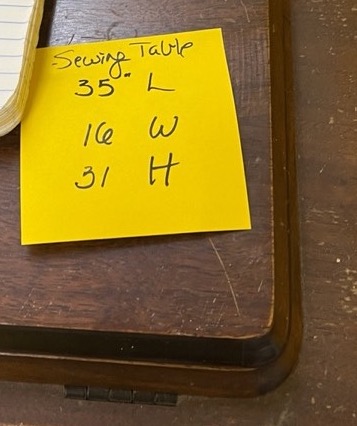 Sewing Table
35" L
16 W
31 H